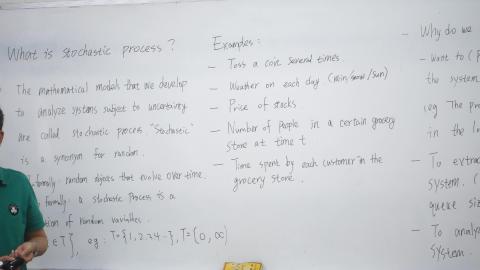 What is stochastic process ?
The mathematical models that we develop
to analyze systems subject to uncertainty
are called stochastic process. "Stochastic"
is a synonym for random.
informally: random objects that evolve over time.
formally: a stochastic Process is a
of random variables.
∈T}, eg: T={1,2,3,4..}, T=(0,∞)
Examples:
- Toss a coin several times.
- Weather on each day (rain/snow/sun)
- Price of stocks.
- Number of People in a certain grocery
store at time t
- Time spent by each customer in the
grocery store.
- Why do we
- want to (P
the system
(eg The pro
in the lo
- To extrac
system. (
queue siz
- To analyz
system.